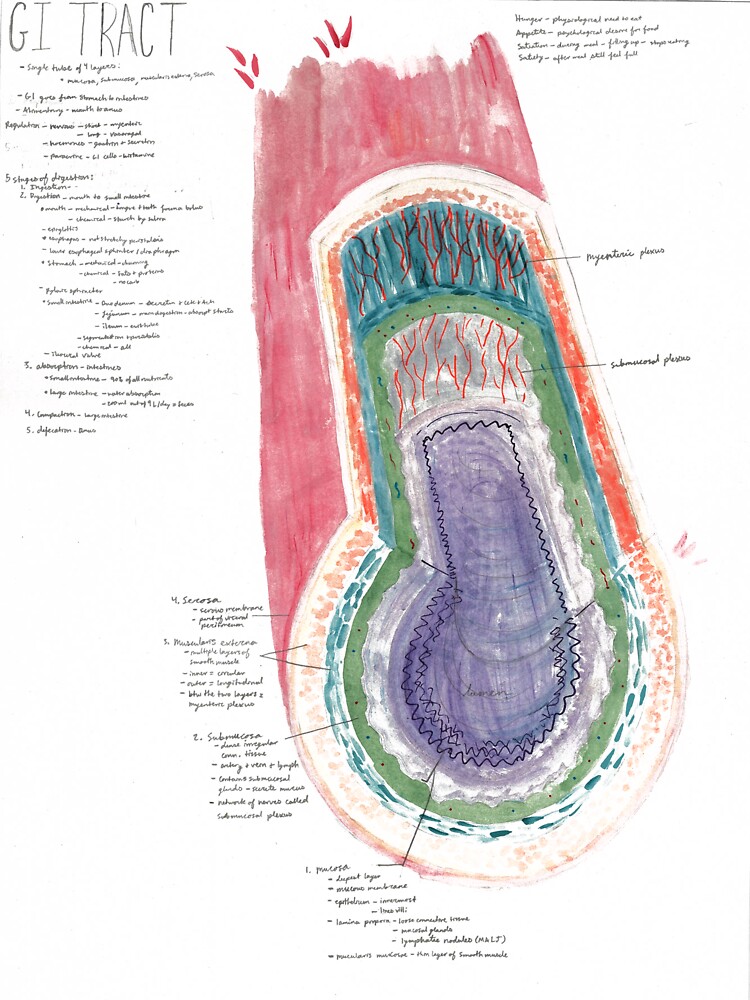 GI TRACT
- Single tube of 4 layers:
* mucosa, submucosa, muscularis externa, serosa
- GI goes from stomach to intestines
- Alimentary - mouth to anus
Regulation - nervous - short - myenteric
- long - vasovagal
- hormones - gastrin + secretin
- paracrine - GI cells - histamine
5 stages of digestion:
1. Ingestion -
2. Digestion - mouth to small intestine
* mouth - mechanical - tongue + teeth forms bolus
- chemical - starch by saliva
- epiglottis
* esophagus - not stretchy peristalsis
- lower esophageal sphincter / diaphragm
* Stomach - mechanical - churning
- chemical - fats + proteins
- no carb
- Pyloric sphincter
* Small intestine - Duodenum - secretin + CCK +
- Jejunum - main digestion - absorpt starts
- ileum -
- segmentation + peristalsis
- chemical - all
- ileocecal valve
3. absorption - intestines
* Small intestine - 90% of all nutrients
* large intestine - water absorption
- 200ml out of 9L/day → feces
4. Compaction - large intestine
5. defecation - anus
Hunger - physiological need to eat
Appetite - psychological desire for food
Satiation - during meal - filling up - stops eating
Satiety - after meal still feel full
myenteric plexus
submucosal plexus
lumen
4. Serosa
- serous membrane
- part of visceral
peritoneum
3. Muscularis externa
- multiple layers of
smooth muscle
- inner = circular
- outer = longitudonal
- btw the two layers =
myenteric plexus
2. Submucosa
- dense irregular
conn. tissue
- artery + vein + lymph
- contains submucosal
glands - secrete mucus
- network of nerves called
submucosal plexus
1. mucosa
- deepest layer
- mucous membrane
- epithelium - innermost
- lines villi
- lamina propria - loose connective tissue
- mucosal glands
- lymphatic nodules (MALT)
- muscularis mucosae - thin layer of smooth muscle